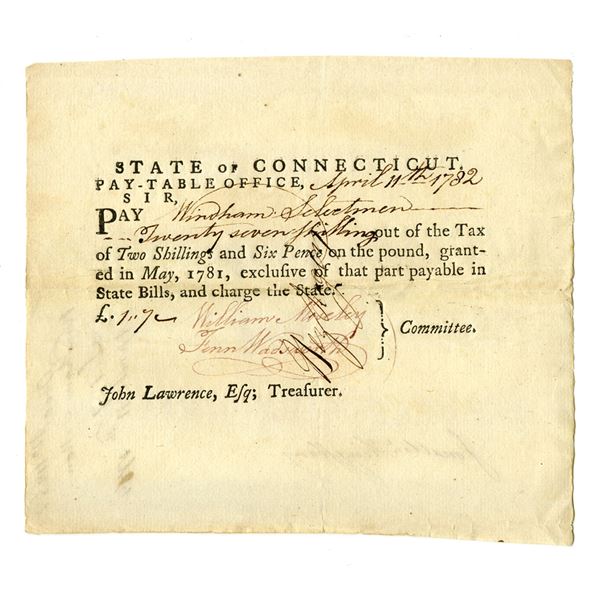 STATE OF CONNECTICUT.
PAY-TABLE OFFICE, April 11th 1782
SIR,
PAY Windham Selectmen
Twenty seven shilling out of the Tax
of Two Shillings and Six Pence on the pound, grant-
ed in May, 1781, exclusive of that part payable in
State Bills, and charge the State.
£. 1..7
William Moseley
Fenn Wadsworth
} Committee.
John Lawrence, Esq; Treasurer.